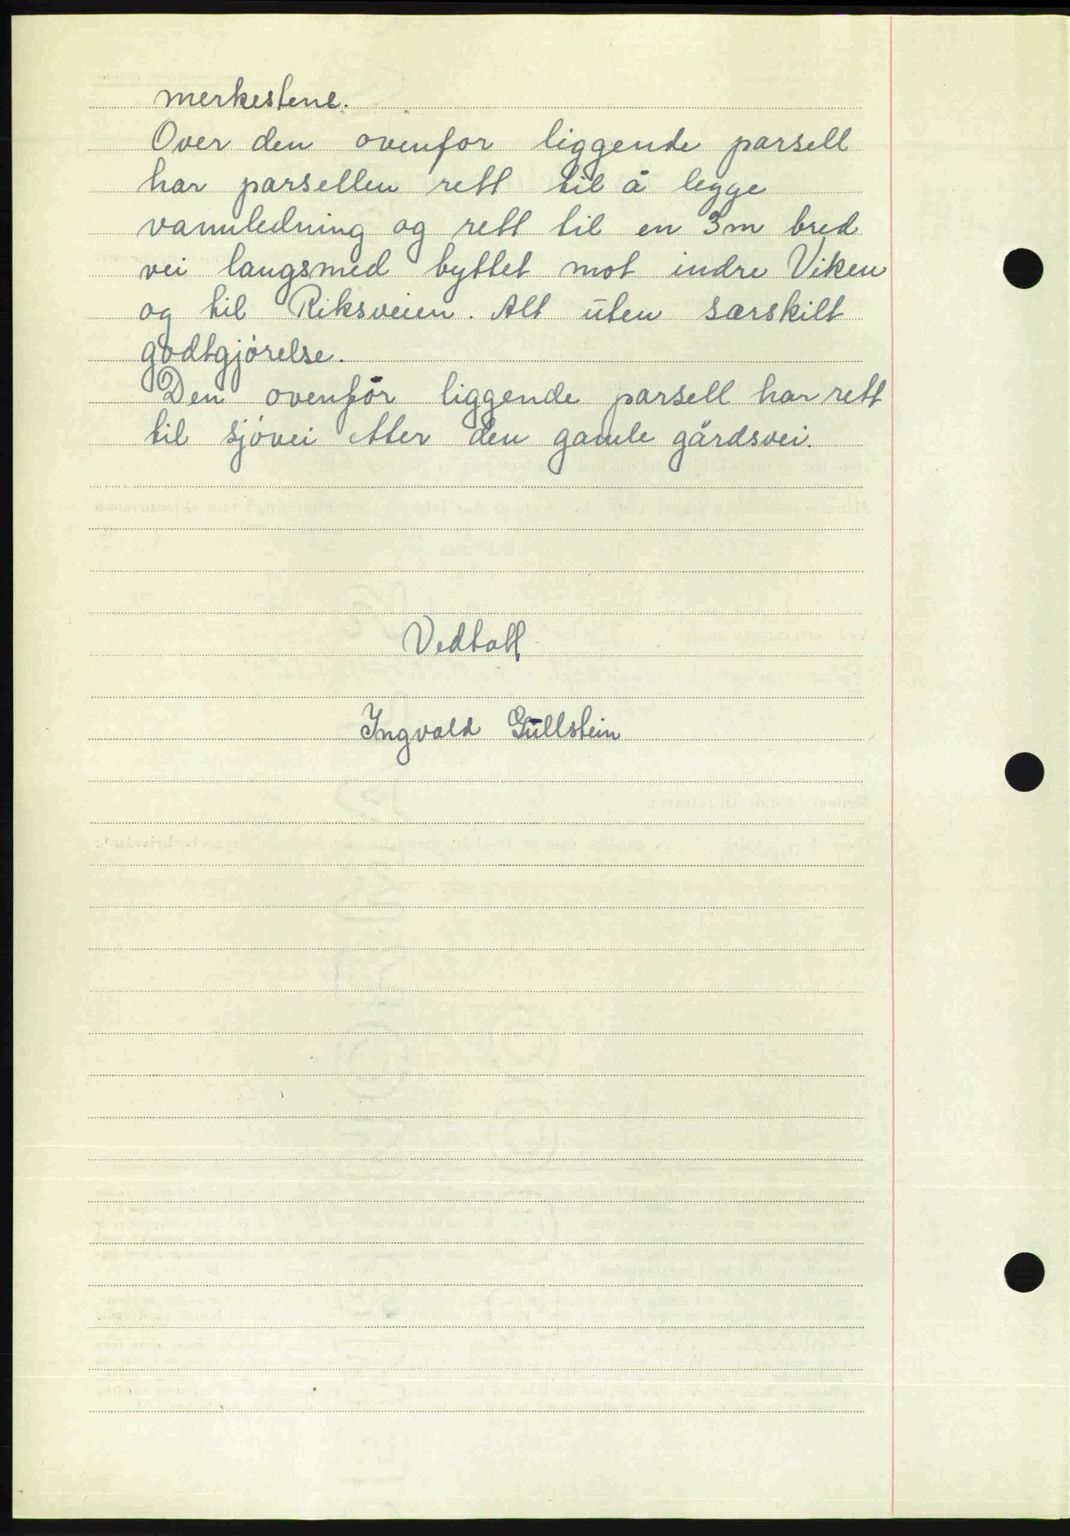 merkestene.
Over den ovenfor liggende parsell
har parsellen rett til å legge
vannledning og rett til en 3m bred
vei langsmed byttet mot indre Viken
og til Riksveien. Alt uten særskilt
godtgjørelse.
Den ovenfor liggende parsell har rett
til sjövei etter den gamle gårdsvei.
Vedtatt
Ingvald Gullstein